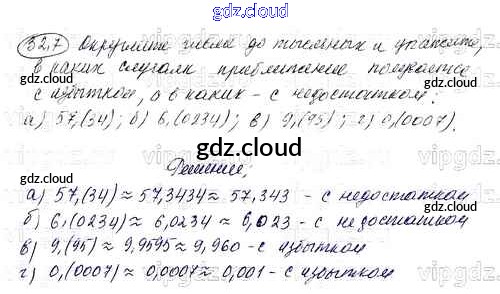 gdz.cloud
32.7 Округлите числа до тысячных и укажите,
в каких случаях приближение получается
с избытком, а в каких - с недостатком:
а) 57,(34); б) 6,(0234); в) 9,(95); г) 0,(0007).
gdz.cloud
Решение;
а) 57,(34) ≈ 57,3434 ≈ 57,343 - с недостатком
б) 6,(0234) ≈ 6,0234 ≈ 6,023 - с недостатком
в) 9,(95) ≈ 9,9595 ≈ 9,960 - с избытком
г) 0,(0007) ≈ 0,0007 ≈ 0,001 - с избытком
gdz.cloud